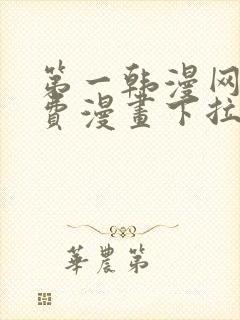 第一韩漫网
费漫畫下拉
華農第